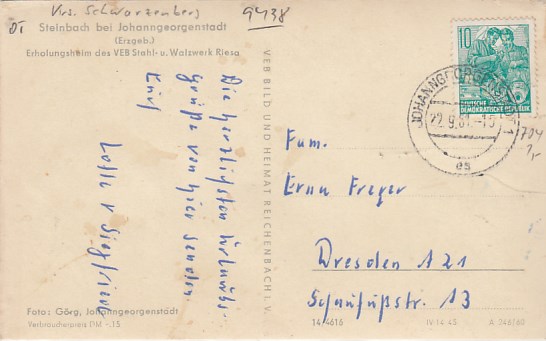 Krs. Schwarzenberg
9438
Steinbach bei Johanngeorgenstadt
(Erzgeb.)
Erholungsheim des VEB Stahl- u. Walzwerk Riesa
Die herzlichsten Urlaubs-
Grüße von hier senden
Euch
Lotte u Siegfried
Foto: Görg, Johanngeorgenstadt
Verbraucherpreis DM -.15
VEB BILD UND HEIMAT REICHENBACH I. V.
10
DEUTSCHE
DEMOKRATISCHE REPUBLIK
22.9.61.-15
Fam.
Erna Freyer
Dresden A21
Schaufußstr. 13
14 4616
IV-14-45
A 246/60